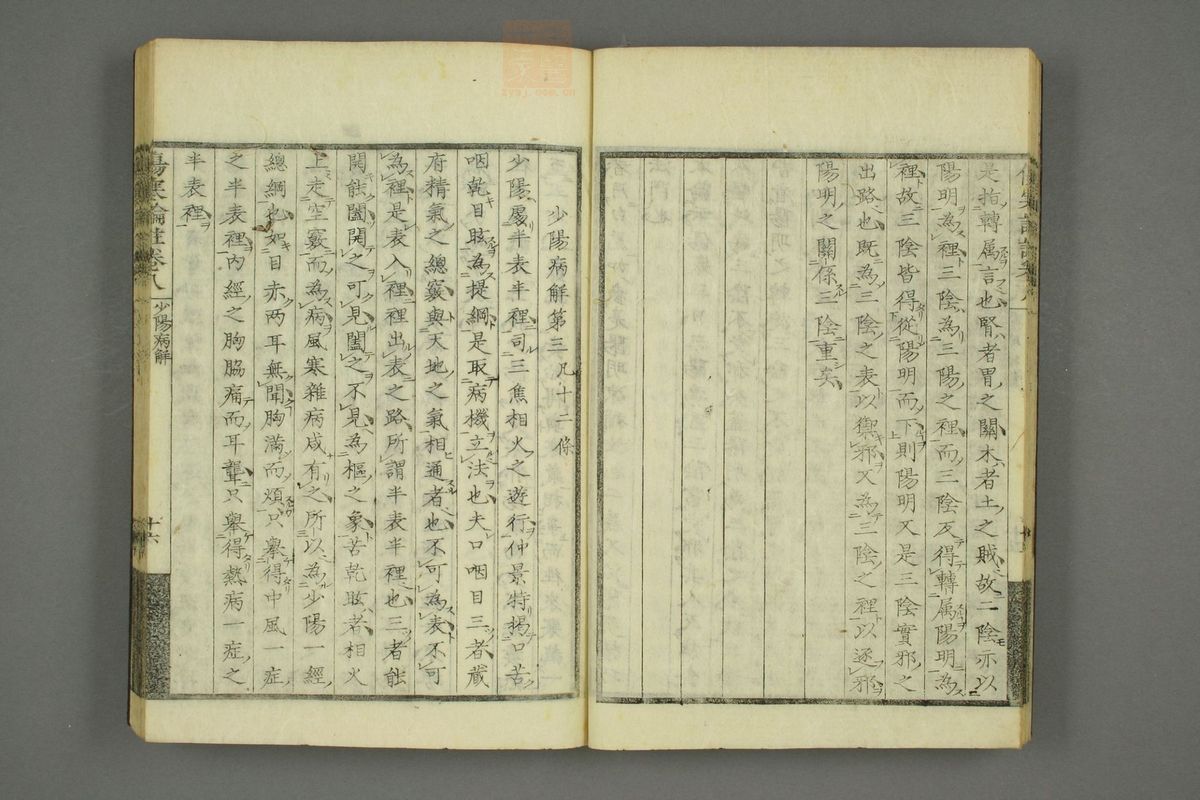 是指轉属言也腎者胃之關木者土之賊故二陰亦以
陽明為裡三陰為三陽之裡而三陰反得轉属陽明為
裡故三陰皆得從陽明而下則陽明又是三陰實邪之
出路也既為三陰之表以禦邪又為三陰之裡以逐邪
陽明之關係三陰重矣
少陽病解第三凡十二條
少陽處半表半裡司三焦相火之遊行仲景特揭口苦
咽乾目眩為提綱是取病機立法也夫口咽目三者蔵
府精氣之總竅與天地之氣相通者也不可為表不可
為裡是表入裡裡出表之路所謂半表半裡也三者能
開能闔開之可見闔之不見為樞之象苦乾眩者相火
上走空竅而為病風寒雜病咸有之所以為少陽一經
總綱也如目赤两耳無聞胸滿而煩只舉得中風一症
之半表裡內經之胸脇痛而耳聾只舉得熱病一症之
半表裡
傷寒論註卷八
少陽病解
十六